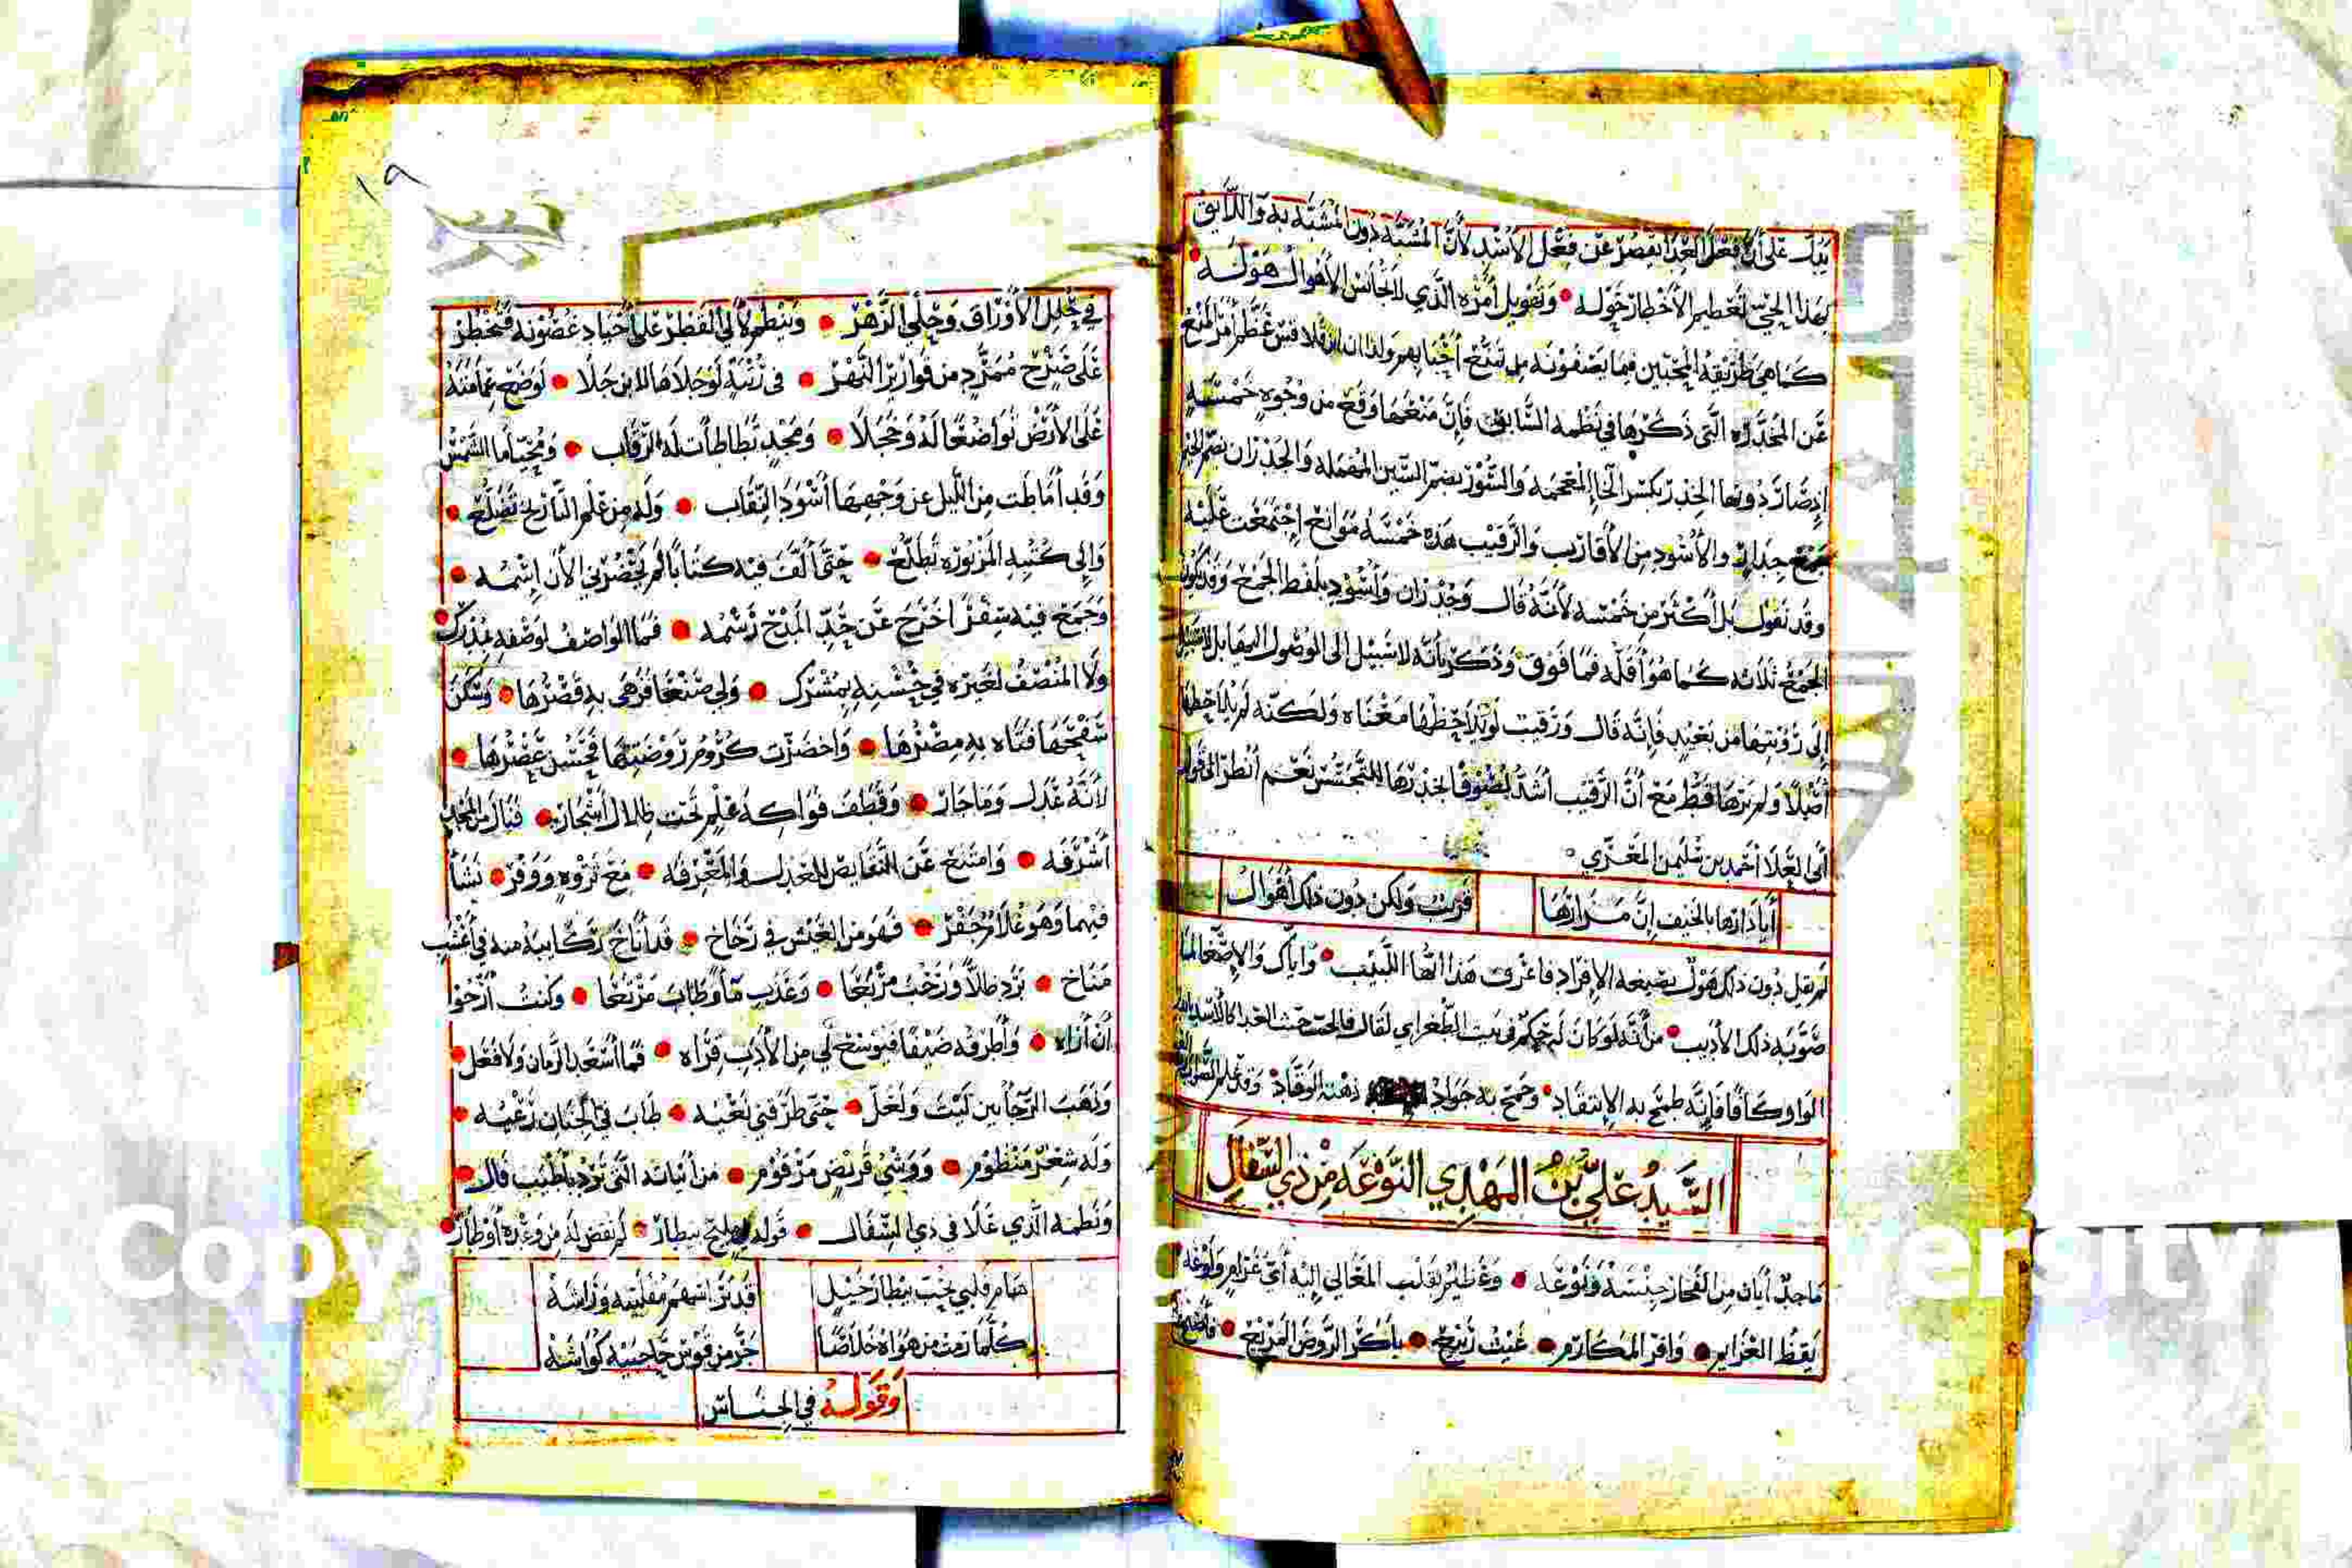 يدل على أن فعل العدا يقصر عن فعل الأسد لأن المشبه دون المشبه به واللايق
لهذا الحي تعظيم الأخطار حوله • وتهويل أمره الذي لا تجانس الأهوال هوله •
كما هي طريقة المحبين فيما يصفونه من تمنع أحبابهم ولذا ان ابن قلاقس عظم أمر المنع
عن المخدره التي ذكرها في نظمه السابق فإن منعها وقع من وجوه خمسة
إذ صار دونها الخدر بكسر الخاء المعجمه والسور بضم السين المهمله والجدران بضم الجيم
جمع جدار والأسود من الأقارب والرقيب هذه خمسة موانع اجتمعت عليه
وقد نقول بل أكثر من خمسه لأنه قال وجدران وأسود بلفظ الجمع وقد يكون
الجمع ثلاثه كما هو أقله فما فوق وذكر بأنه لا سبيل إلى الوصول
إلى رؤيتها من بعيد فإنه قال ورقيب لو يلاحظها معناه ولكنه لم يلاحظها
أصلا ولم يرها قط مع أن الرقيب أشد لصوقا بخدرها للتجسس نعم أنظر إلى قول
أبي العلا أحمد بن سليمن المعري •
أيا دارها بالخيف إن مزارها قريب ولكن دون ذلك أهوال
لم يقل دون ذلك هول بصيغه الإفراد فاعرف هذا ايها اللبيب • وإياك والإصغا لما
صوبه ذلك الأديب • من أنه لو كان في بيت الطغراي لقال فالحب حيث العدا كالأسد
الواو كافا فإنه طمح به الإنتقاد • وجمح به جواد ذهنه الوقاد •
السيد علي بن المهدي النوعه من ذي السفال
ماجد أبان من الفخار جنسه ونوعه • وغطريف لقلب المعالي إليه أي غرام ولوعه
يقظ العزايم • وافر المكارم • غيث ربيع • باكر الروض المريع •
١٩
في حلل الأوراق وحلي الزهر • وينظم لآلي القطر على أجياد غصونه فتخطر
على صرح ممرد من قوارير النهر • في رتبة لو جلاها لابن جلا • لوضع عمامته
على الأرض تواضعا له وخجلا • ومجد تطاطات له الرقاب • ومحيا ما الشمس
وقد أماطت من الليل عن وجهها أسود النقاب • وله من علم التاريخ تضلع •
وإلى كتبه المزبوره تطلع • حتى ألف فيه كتابا لم يحضرني الآن إسمه •
وجمع فيه سفرا خرج عن حد المدح رسمه • فما الواصف لوصفه بمدرك
ولا المنصف لغيره في حسنه بمشرك • ولي صنعا فزهى به قصرها • وسكن
سفحها فتاه به مصرها • واخضرت كروم روضتها فحسن عصرها •
لأنه عدل وما جار • وقطف فواكه علم تحت ظلال أشجار • فنال من المجد
أشرفه • وامتنع عن النقايص للعدل والمعرفه • مع ثروه ووفر • نشأ
فيهما وهو غلام جفر • فهو من العيش في رخاخ • قد أناخ ركابيه منه في أعشب
مناخ • برد ظلا ورحب مربعا • وعذب ماء وطاب مرتعا • وكنت أرجوا
أن أراه • وأطرقه ضيفا فيوسع لي من الأدب قراه • فما أسعد الزمان ولا فعل •
وذهب الرجا بين ليت ولعل • حتى طرقني نعيه • طاب في الجنان رعيه •
وله شعر منظوم • ووشي قريض مرقوم • من أبياته التي ترد بأطيب فال •
ونظمه الذي غلا في ذي السفال • قوله في مليح بيطار • لم نقض له من وعده أوطار •
هام قلبي بحب بيطار خيل قد برا اسهم مقلتيه وراشه
كلما رمت من هواه خلاصا جر من قوس حاجبيه كواشه
وقوله في الجناس